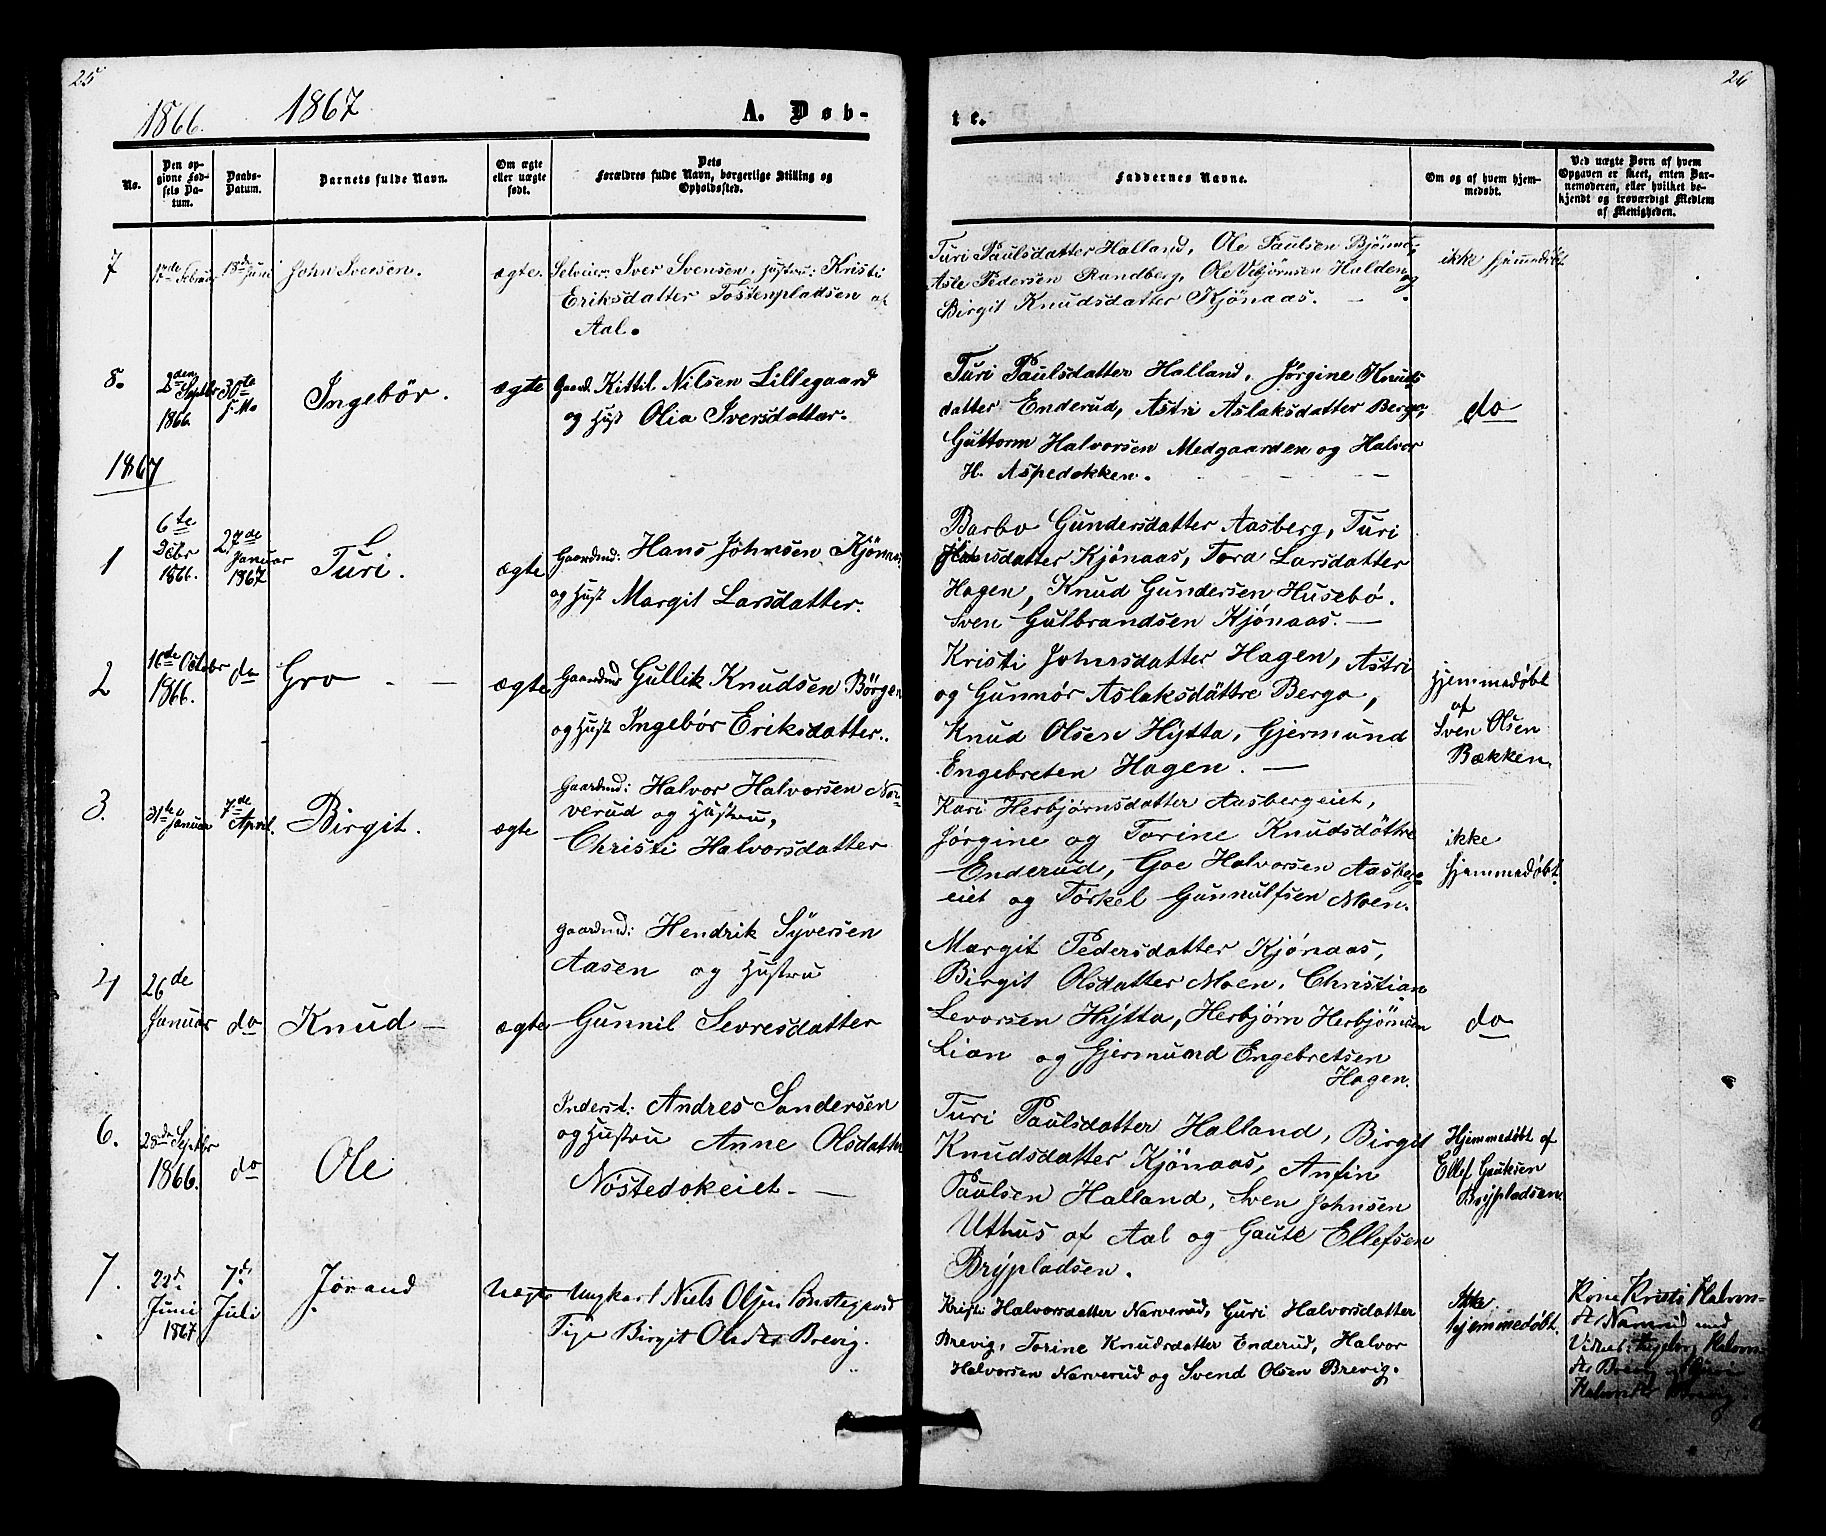 25
1866. 1867
A. Døb-
No.
Den op-
givne Fød-
sels Da-
tum.
Daabs-
Datum.
Barnets fulde Navn.
Om ægte
eller uægte
født.
Dets
Forældres fulde Navn, borgerlige Stilling og
Opholdssted.
7
17de Februar
18d Juni
John Iversen.
ægte.
Selveier. Iver Svensen. Hustru: Kristi
Eriksdatter Tostenpladsen af
Aal.
8.
2den Septbr
1866.
30te
ægte
Ingebör.
Gaard. Kittil Nilsen Lillegaard
og Hust Olia Iversdatter.
1867
1
6te
Debr
1866.
27de
Januar
1867
Turi.
ægte
Gaardmd: Hans Johnsen Kjönaas
og Hust Margit Larsdatter.
2
16de Octobr
1866.
do
Gro - -
ægte
Gaardmd Gullik Knudsen Börgen
og Hust Ingebör Eriksdatter.
3.
31te
Januar
7de
April.
Birgit.
ægte
Gaardmd: Halvor Halvorsen Nar-
verud og Hustru,
Christi Halvorsdatter
4
26de
Januar
do
Knud -
ægte
Gaardmd: Hendrik Syversen
Aasen og Hustru
Gunnil Sevresdatter
6.
28de Septbr
1866.
do
Ole
Inderst: Andres Sandersen
og Hustru Anne Olsdatter
Nöstedokeiet. -
7.
22d
Juni
1867
7d
Juli
Jörand
Uægte
Ungkarl Niels Olsen
Pige Birgit Olsdtr Brevig.
26
te.
Faddernes Navne.
Om og af hvem hjem-
medøbt.
Ved uægte Børn af hvem
Opgaven er skeet, enten Bar-
nemoderen, eller hvilket be-
kjendt og troværdigt Medlem
af Menigheden.
Turi Paulsdatter Halland, Ole Paulsen Bjönnes,
Asle Pedersen Randberg, Ole Vebjörnsen Halden og
Birgit Knudsdatter Kjönaas. -
ikke hjemmedöbt
Turi Paulsdatter Halland, Jörgine Knuds
datter Enderud, Astri Aslaksdatter Berga,
Guttorm Halvorsen Medgaarden og Halvor
H. Aspedokken.
do
Barbo Gundersdatter Aasberg, Turi
Hansdatter Kjönaas, Tora Larsdatter
Hagen, Knud Gundersen Husebö.
Sven Gulbrandsen Kjönaas. -
Kristi Johnsdatter Hagen, Astri
og Gunnör Aslaksdöttre Berga,
Knud Olsen Hytta, Gjermund
Engebreten Hagen. -
Hjemmedöbt
af
Sven Olsen
Bækken.
Kari Herbjörnsdatter Aasbergeiet,
Jörgine og Torine Knudsdöttre
Enderud, Goe Halvorsen Aasberg-
eiet og Törkel Gunnulfsen Moen.
ikke
hjemmedöbt.
Margit Pedersdatter Kjönaas,
Birgit Olsdatter Moen, Christian
Levorsen Hytta, Herbjörn Herbjörnsen
Lian og Gjermund Engebretsen
Hagen.
do
Turi Paulsdatter Halland, Birgit
Knudsdatter Kjönaas, Anfin
Paulsen Halland, Sven Johnsen
Uthus af Aal og Gaute Ellefsen
Brypladsen.
Hjemmedöbt af
Ellef Gautesen
Brypladsen.
Kristi Halvorsdatter Narverud, Guri Halvorsdatter
Brevig, Torine Knudsdatter Enderud, Halvor
Halvorsen Narverud og Svend Olsen Brevig.
Ikke
hjemmedöbt.
Kone Kristi Halvors-
dtr Narverud med